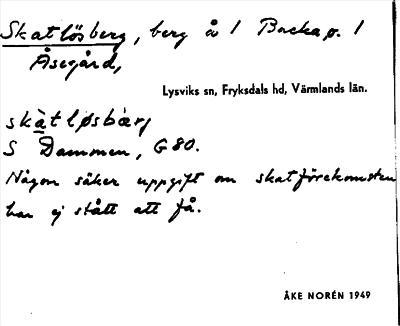 Skatlösberg, berg å 1 Backa o. 1
Åsegård,
Lysviks sn, Fryksdals hd, Värmlands län.
skàtløsbærj
S Dammen, G 80.
Någon säker uppgift om skatförekomsten
har ej stått att få.
ÅKE NORÉN 1949